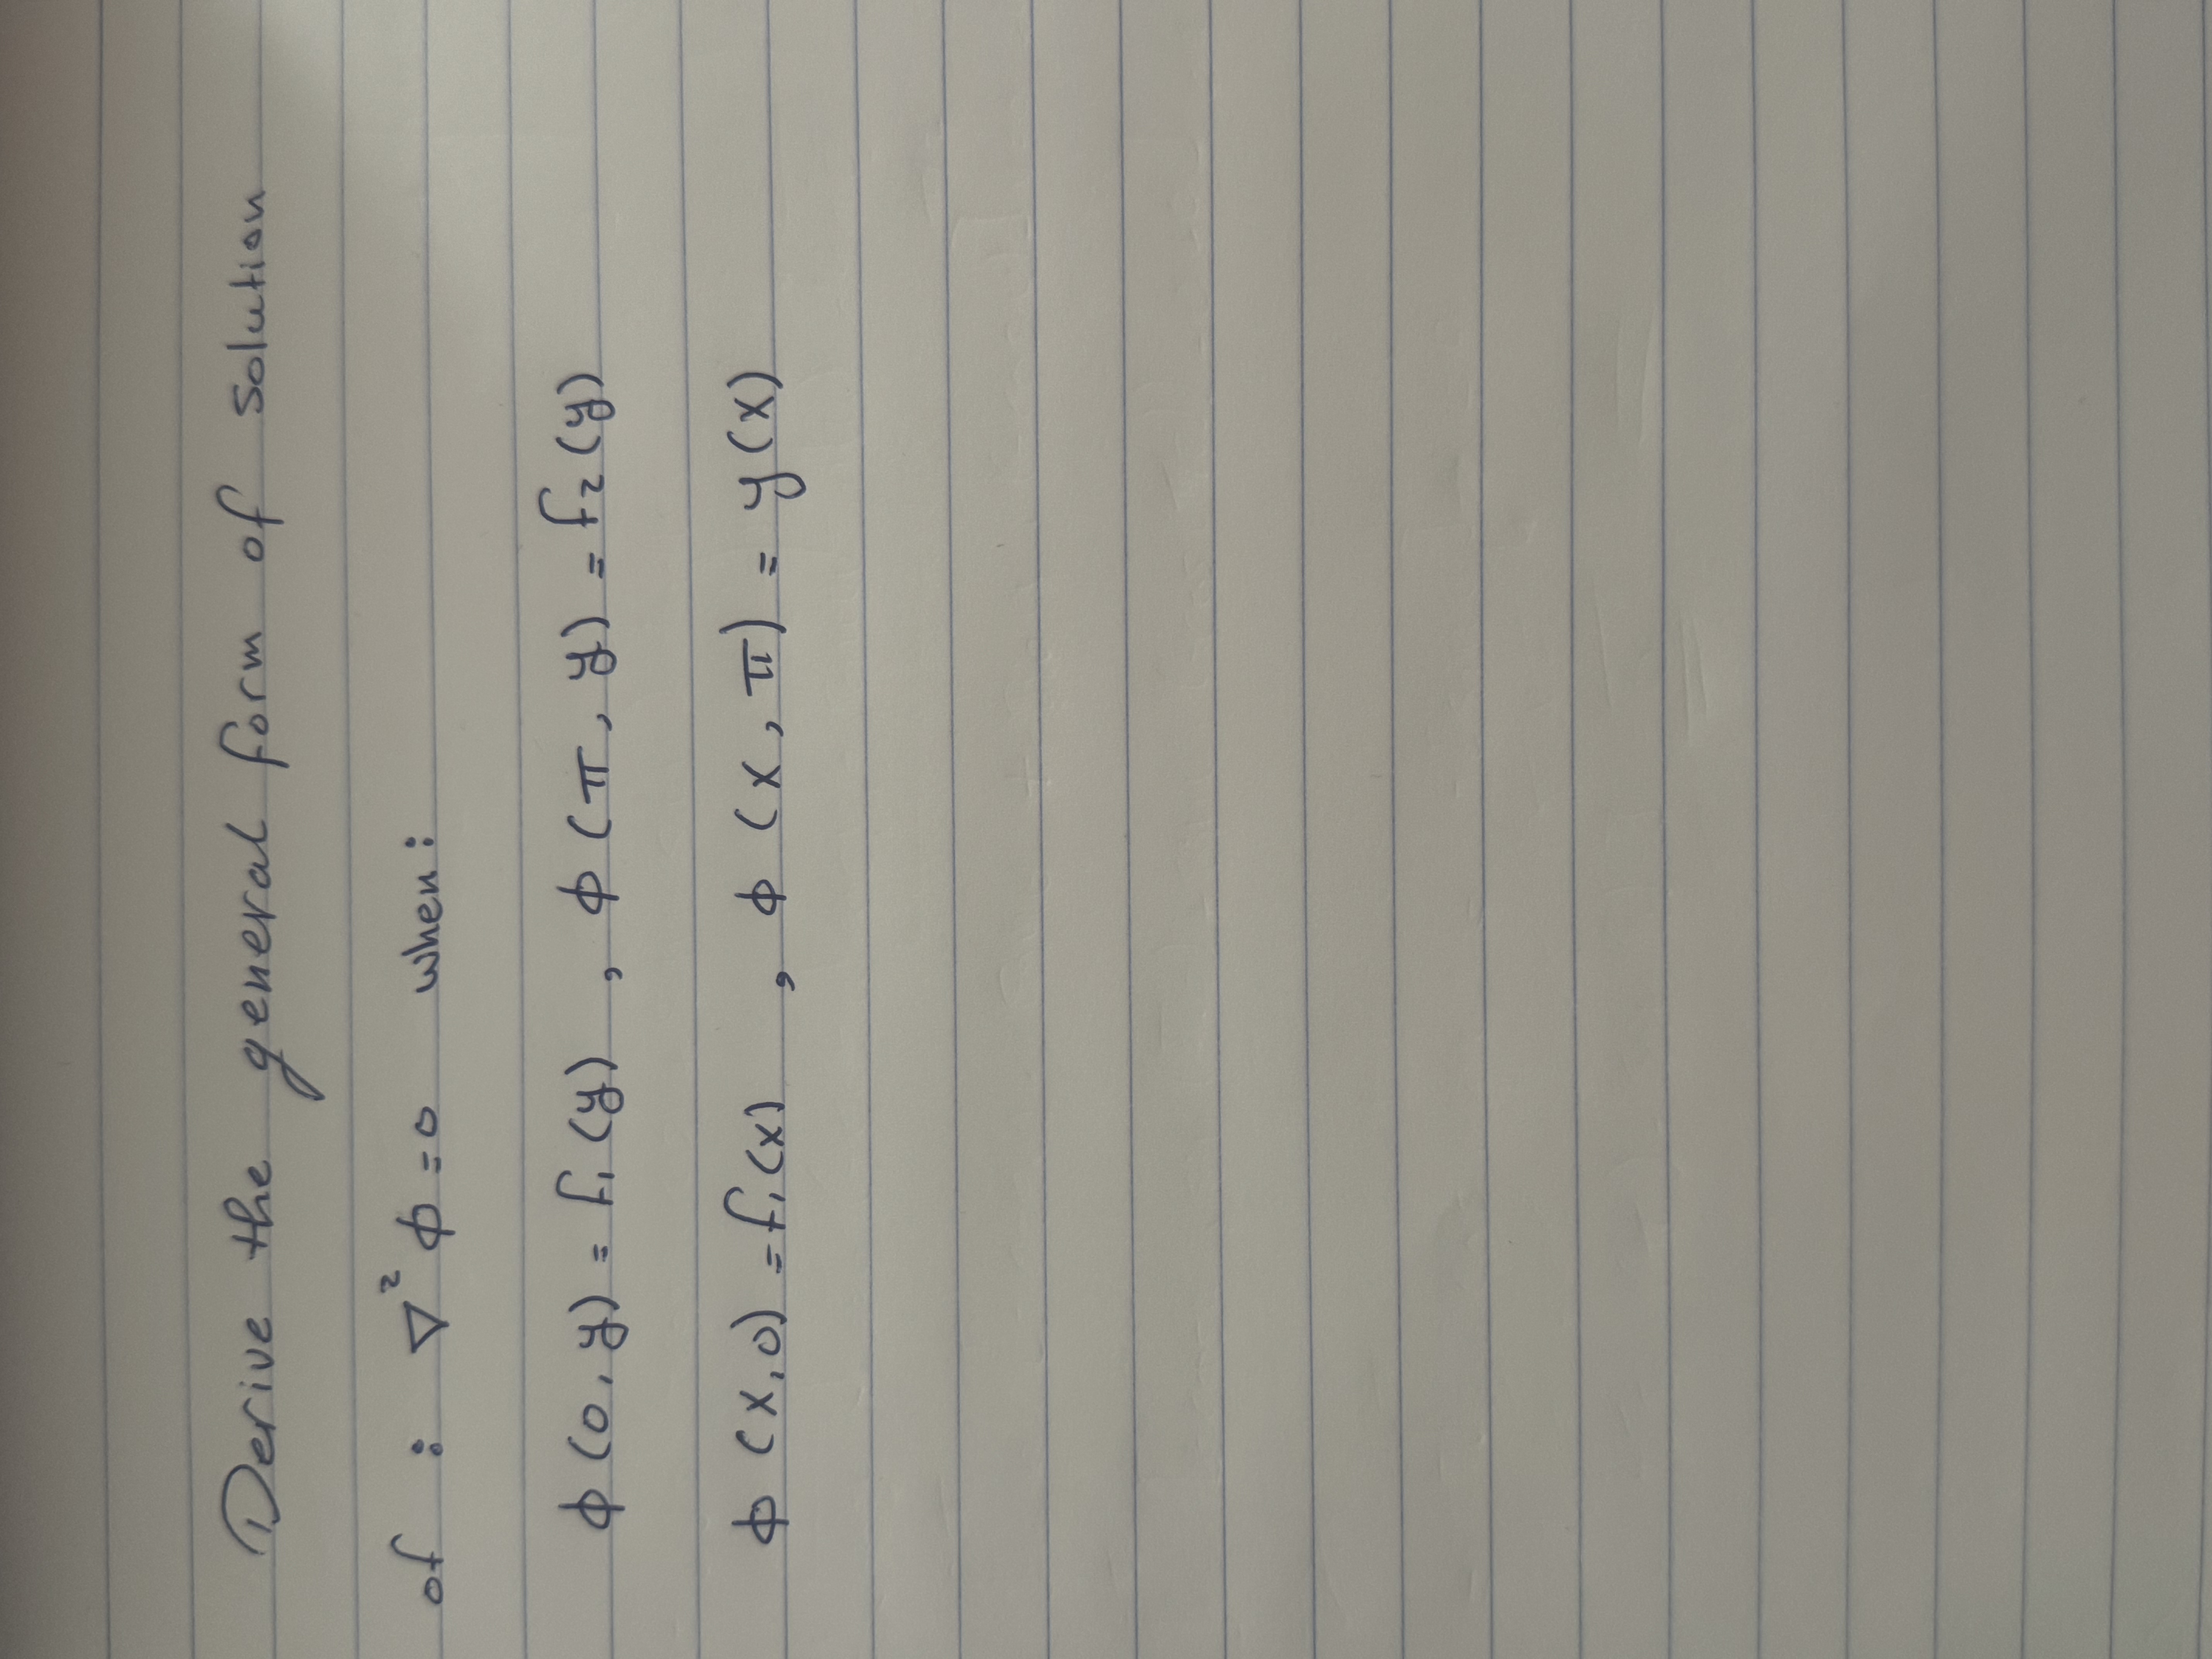 Derive the general form of solution
of : ∇² ϕ = 0 when :
ϕ (0, y) = f₁ (y) , ϕ (π, y) = f₂ (y)
ϕ (x, 0) = f₁ (x) , ϕ (x, π) = y (x)